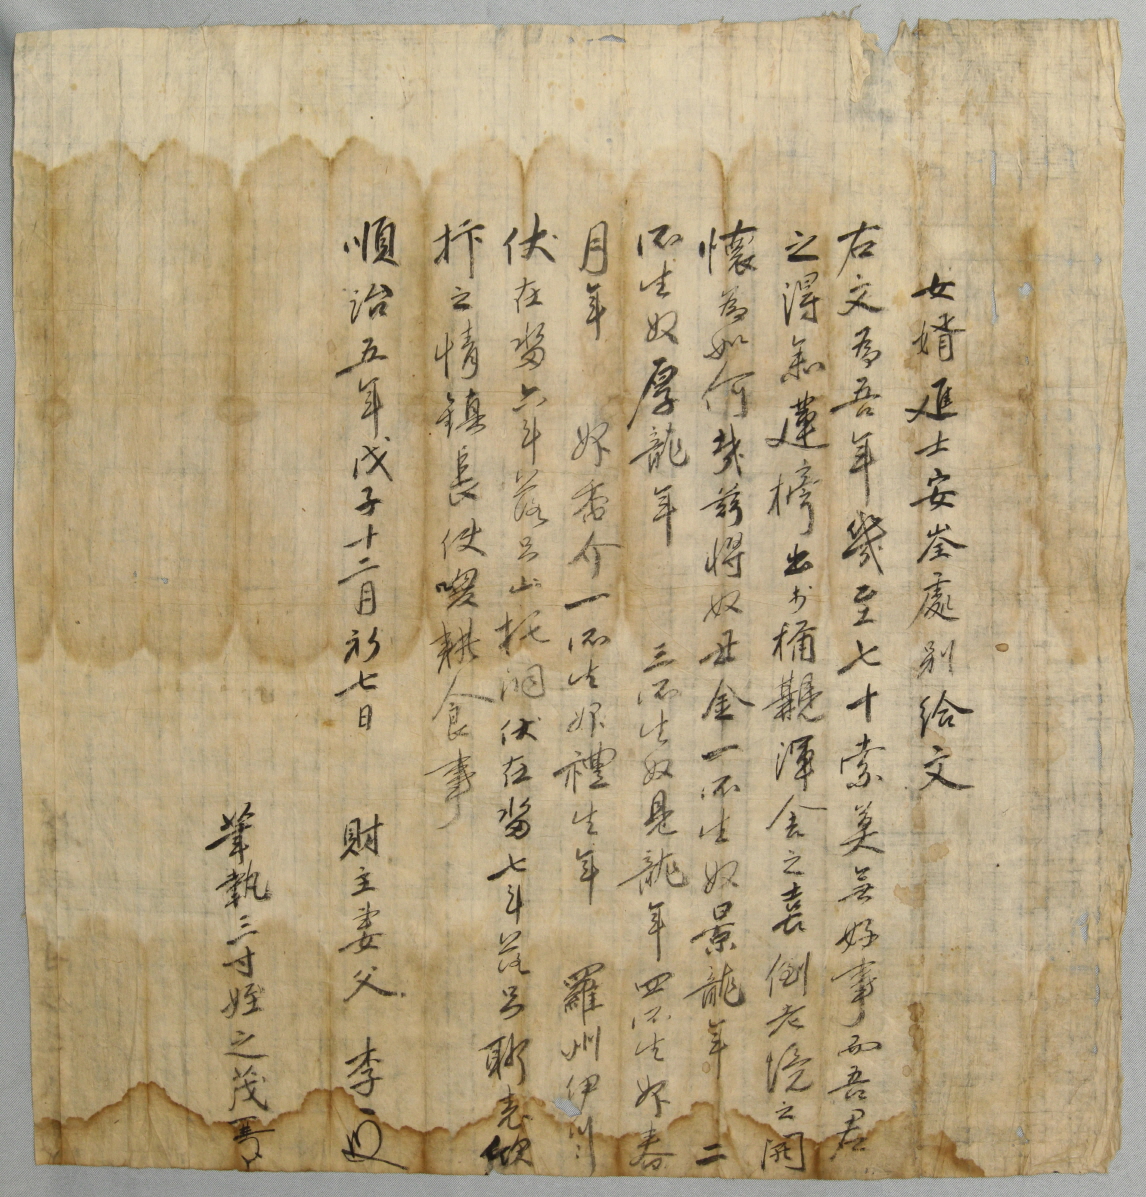 女婿進士安崟處別給文
右文爲吾年幾至七十索莫無好事而吾君
之得參蓮榜出於桶觀渾舍之喜倒老境之開
懷爲如何哉玆將奴丑金一所生奴景龍年 二
所生奴厚龍年 三所生奴是龍年四所生婢春
月年 婢香介一所生婢禮生年 羅州伊川
伏在畓六斗落只山枕洞伏在畓七斗落只聊表傾
抃之情鎭長使喚耕食事
順治五年戊子十二月初七日 財主妻父 李
筆執三寸姪之茂